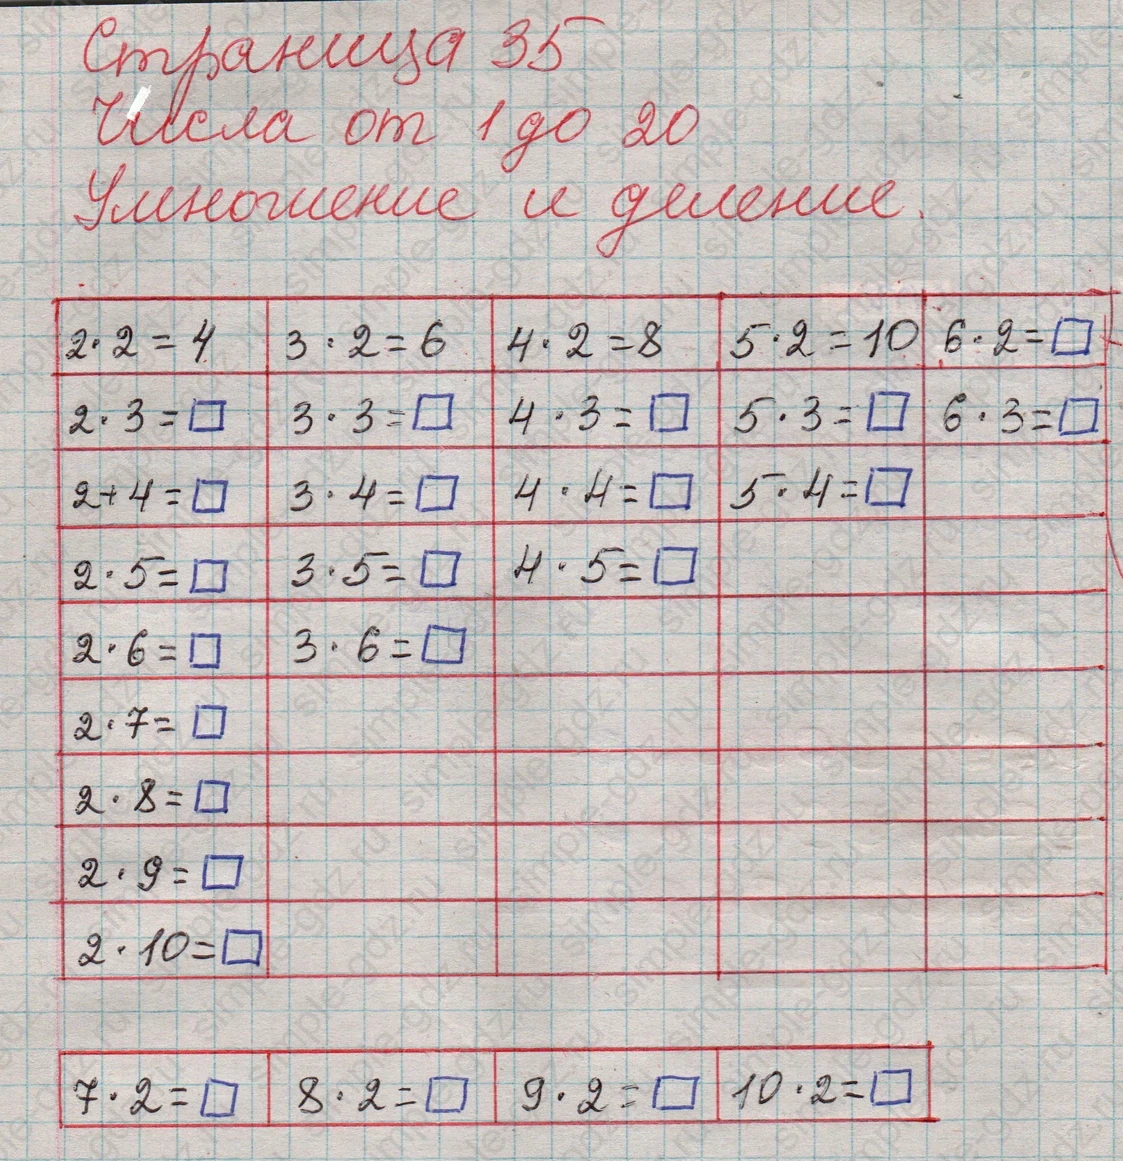 Страница 35
Числа от 1 до 20
Умножение и деление.
2·2=4 3·2=6 4·2=8 5·2=10 6·2=□
2·3=□ 3·3=□ 4·3=□ 5·3=□ 6·3=□
2+4=□ 3·4=□ 4·4=□ 5·4=□
2·5=□ 3·5=□ 4·5=□
2·6=□ 3·6=□
2·7=□
2·8=□
2·9=□
2·10=□
7·2=□ 8·2=□ 9·2=□ 10·2=□
simple-gdz.ru